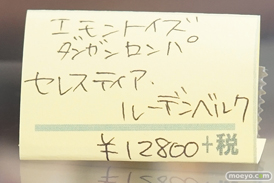 エモントイズ。
ダンガンロンパ
セレスティア.
ルーデンベルク
¥12800+税
moeyo.com